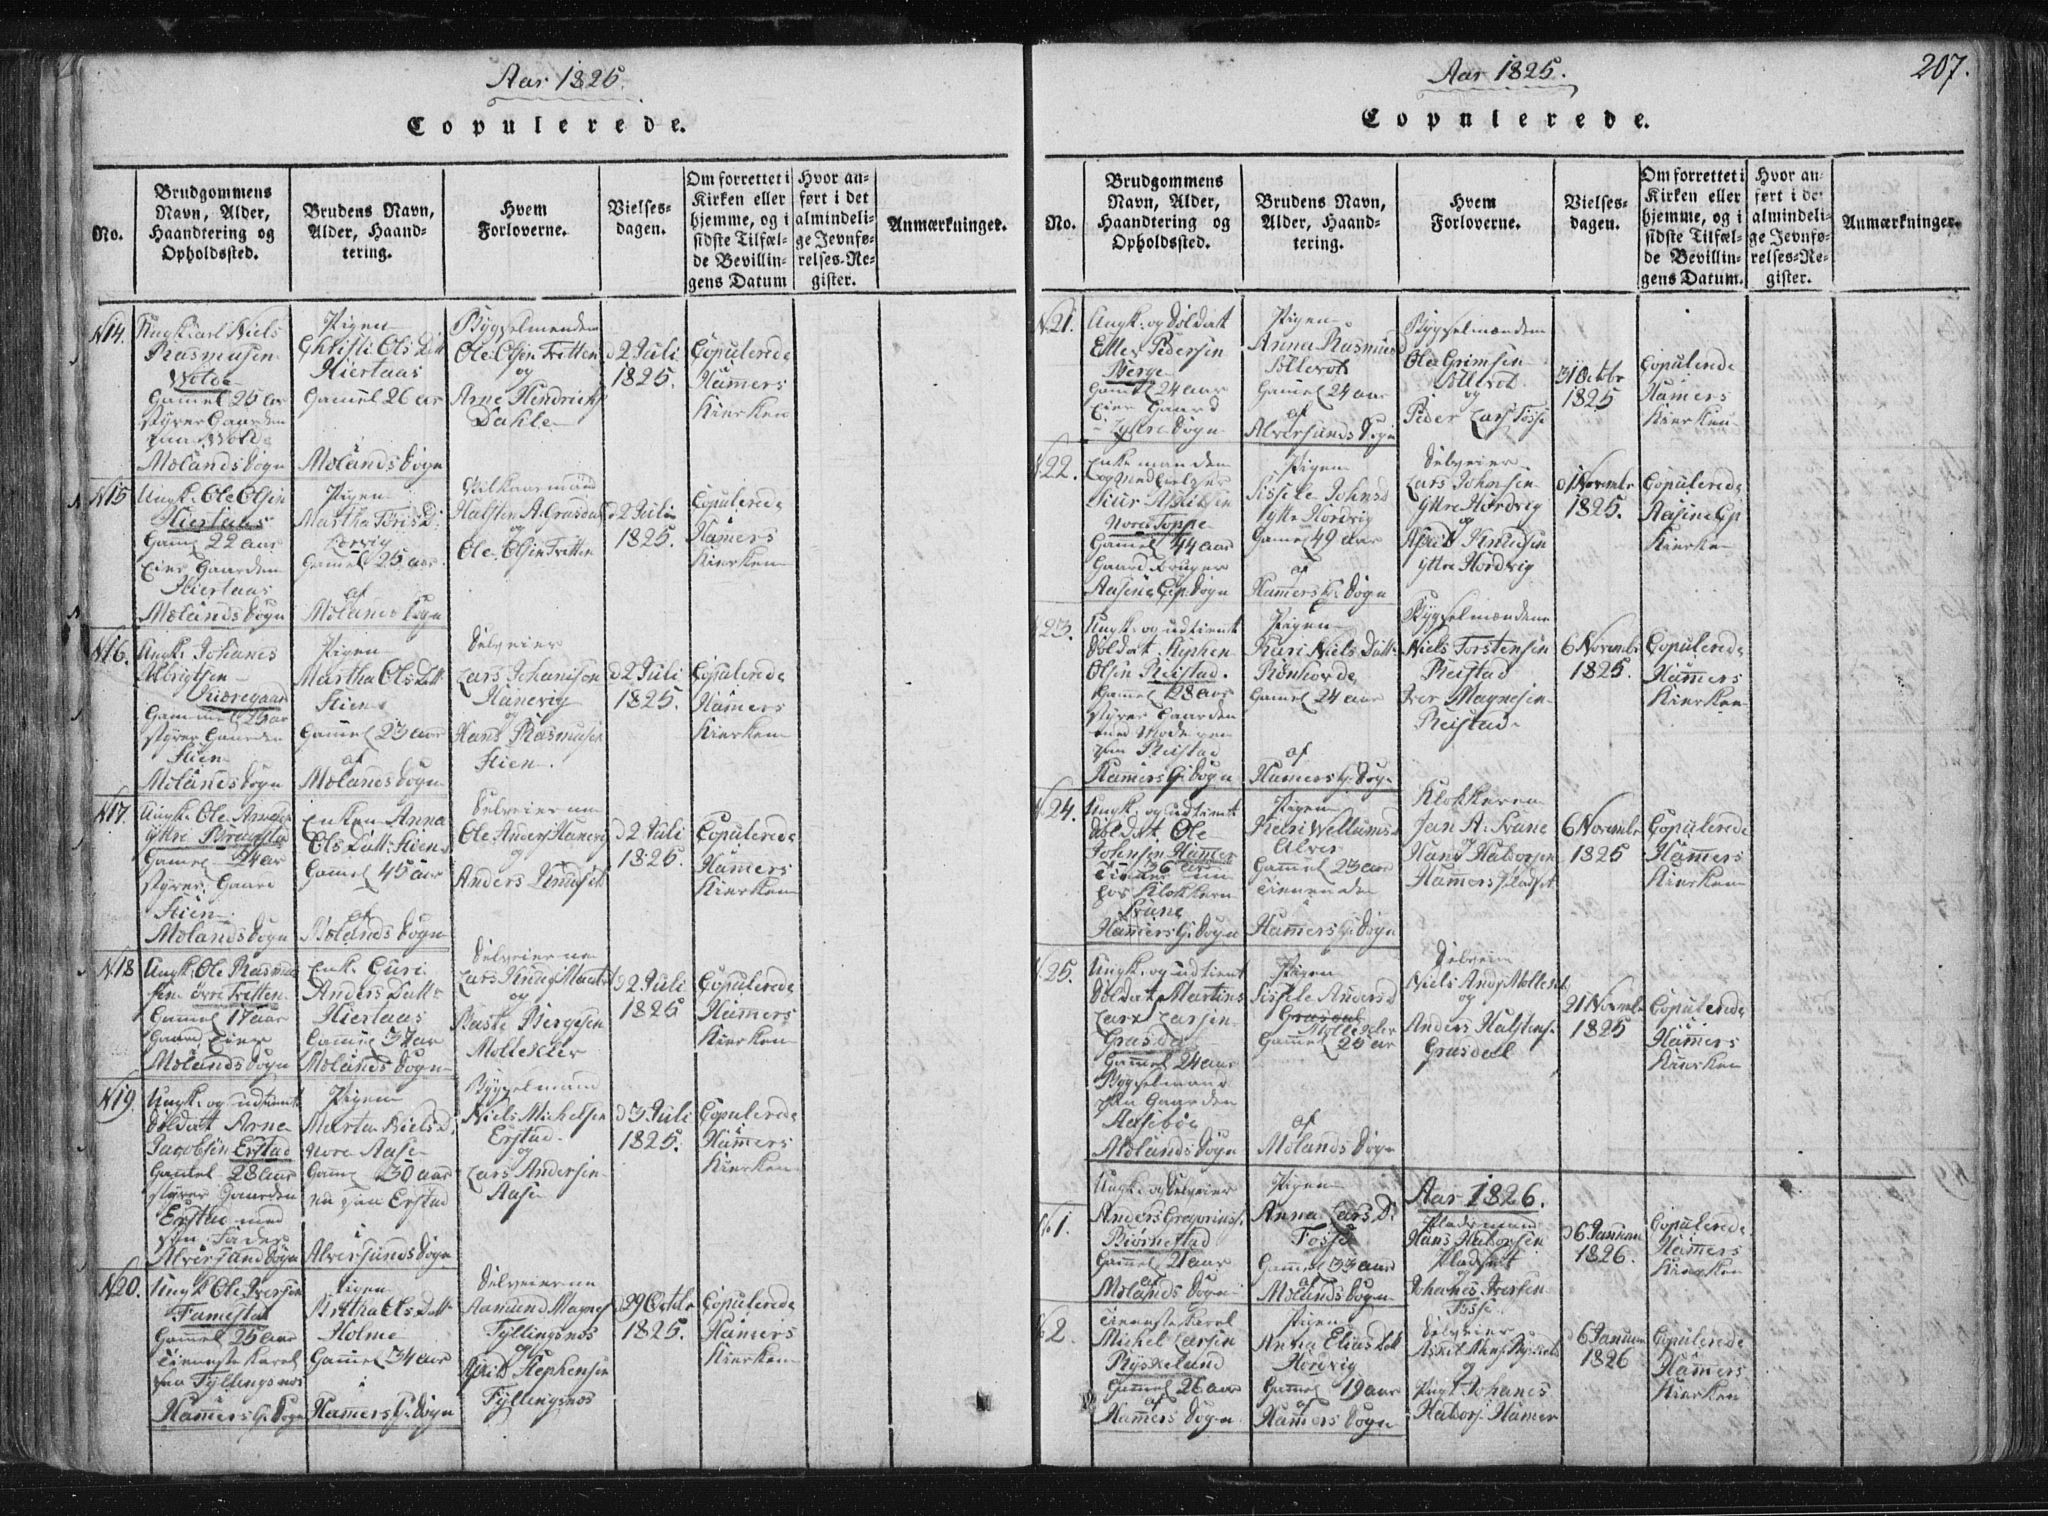 Aar 1825.
Copulerede.
No.
Brudgommens
Navn, Alder,
Haandtering og
Opholdssted.
Brudens Navn,
Alder, Haand-
tering.
Hvem
Forloverne.
Vielses-
dagen.
Om forrettet i
Kirken eller
hjemme, og i
sidste Tilfæl-
de Bevillin-
gens Datum
Hvor an-
ført i det
almindeli-
ge Jevnfø-
relses-Re-
gister.
Anmærkninger.
N14.
Ungkarl Niels
Rasmusen
Wolde
Gamel 25 aar
styrer Gaarden
Wolde
Molands Sogn
Pigen
Christi Ols Datt
Hiertaas
Gamel 26 aar
Molands Sogn
Bygselmændene
Ole Olsen Tritten
og
Arne Hendrichs
Dahle
d 2 Juli
1825.
Copulerede
Hamers
Kierken
N15
Ungk: Ole Olsen
Hiertaas
Gamel 22 aar
Eier Gaarden
Hiertaas
Molands Sogn
Pigen
Martha
Gamel 25 aar
af
Molands Sogn
Halsten A. Grasdal
og
Ole Olsen Tritten
d 2 Juli
1825.
Copulerede
Hamers
Kierken
N16.
Ungk: Johanes
Albrigtsen
Gammel 25 aar
styrer Gaarden
Hien
Molands Sogn
Pigen
Martha Ols Datt
Hien
Gamel 23 aar
af
Molands Sogn
Selveier
Lars Johanisen
Hanevig
og
Hans Rasmusen
Hien.
d 2 Juli
1825.
Copulerede
Hamers
Kierken
N17.
Ungk: Ole
ytre
Gamel 24 aar
styrer Gaard
Hien
Molands Sogn
Enken Anna
Ols Datt: Hien
Gamel 45 aar
af
Molands Sogn
Selveierne
Ole Anders Hanevig
og
Anders Knudsen
d 2 Juli
1825.
Copulerede
Hamers
Kierken
N18
Ungk: Ole Rasmu
sen övre Tritten
Gamel 17 aar
Gaard Eier
Molands Sogn
Enk: Guri
Anders Datt
Hiertaas
Gamel 37 aar
Molands Sogn
Selveierne
Lars
og
Raste Bergesen
Mollekler
d 2 Juli
1825
Copulerede
Hamers
Kierken
N19.
Ungk: og udtient
Soldatt Arne
Jacobsen Erstad
Gamel 28 aar
styrer Gaarden
Erstad med
sin Fader
Alversund Sogn
Pigen
Marta Niels D.
nora Aase
Gamel 30 aar
nu paa Erstad
i
Alversunds Sogn
Bygselmænd
Niels Michelsen
Erstad
og
Lars Andersen
Aase
d 3 Juli
1825.
Copulerede
Hamers
Kierken
N20.
Ungk Ole Iversen
Famestad
Gamel 25 aar
Tieneste Karel
paa Fyllingsnos
i
Hamers G. Sogn
Pigen
Ols Datt
Holme
Gamel 34 aar
i
Hamers G. Sogn
Selveierne
Aamund Magnes
Fyllingsnos
og
Stephensen
Fyllingsnos
29 Octobr
1825.
Copulerede
Hamers
Kierken
Aar 1825.
207.
Copulerede.
No.
Brudgommens
Navn, Alder,
Haandtering og
Opholdssted.
Brudens Navn,
Alder, Haand-
tering.
Hvem
Forloverne.
Vielses-
dagen.
Om forrettet i
Kirken eller
hjemme, og i
sidste Tilfæl-
de Bevillin-
gens Datum.
Hvor an-
ført i det
almindeli-
ge Jevnfø-
relses-Re-
gister.
Anmærkninger.
N.21.
Ungk: og Soldat
Peder​sen
Berge
Gamel 24 aar
Eier Gaard
Sogn
Pigen
Anna Rasmusd
Gamel 24 aar
af
Alversunds Sogn
Bygselmændene
Ole Grimsen
og
Peder Lars Fosse
31 Octbr
1825
Copulerede
Hamers
Kierken
22.
Enkemanden
og
Gamel 44 aar
Gaard bruger
Aasene Sogn
Pigen
Sissele Johnsd
Ytre Hordvig
Gamel 49 aar
af
Hamers G. Sogn
Selveier
Lars Johnsen
Yttre Hordvig
og
Knudsen
yttre Hordvig
d 1 Novembr
1825.
Copulerede
Kierken
23.
Ungk: og udtient
Soldat Stephen
Olsen Reistad.
Gamel 28 aar
styrer Gaarden
med Moderen
paa Reistad
Hamers G. Sogn
Pigen
Kari Niels Datt
Gamel 24 aar
af
Hamers G. Sogn
Bygselmændene
Niels Torstensen
Reistad
Iver Magnesen
Reistad
6 Novembr
1825.
Copulerede
Hamers
Kierken
24.
Ungk: og udtient
Soldat Ole
Johnsen Hamer
36 aar
hos Klokkeren
Svane
Hamers G. Sogn
Pigen
Kari Wellumsd
Alver
Gammel 23 aar
Tienende
i
Hamers G. Sogn
Klokkeren
Jan A: Svane
Hans Haldorsen
Hamers pladset
6 Novembr
1825
Copulerede
Hamers
Kierken
25.
Ungk: og udtient
Soldat Martinus
Lars Larsen
Grasdal
Gamel 24 aar
Bygselmand
paa Gaarden
Aasebøe
Molands Sogn
Pigen
Sissele Andersd
Grasdal
Mollekler
Gammel 25 aar
af
Molands Sogn
Selveier
Niels Anders Mollekl
og
Anders Halstens.
Grasdal
21 Novembr
1825
Copulerede
Hamers
Kierken
Aar 1826.
No 1.
Ungk. og Selveier
Anders Gregorius.
Biørnestad
Gammel 21 aar
af
Molands Sogn
Pigen
Anna Lars D.
Fosse
Gammel 33 aar
af
Molands Sogn
Pladsmand
Hans Haldorsen
Pladset
og
Johanes Iversen
Fosse
d 6 Januari
1826.
Copulerede
Hamers
Kierken
No 2.
Tieneste Karel
Michel Larsen
Byskelund
Gammel 26 aar
af
Hamers Sogn
Pigen
Anna Elias Datt
Hordvig
Gamel 19 aar
af
Hamers Sogn
Selveier
og
Ungk Johanes
Haldors. Hamer
d 6 Januari
1826
Copulerede
Hamers
Kierken